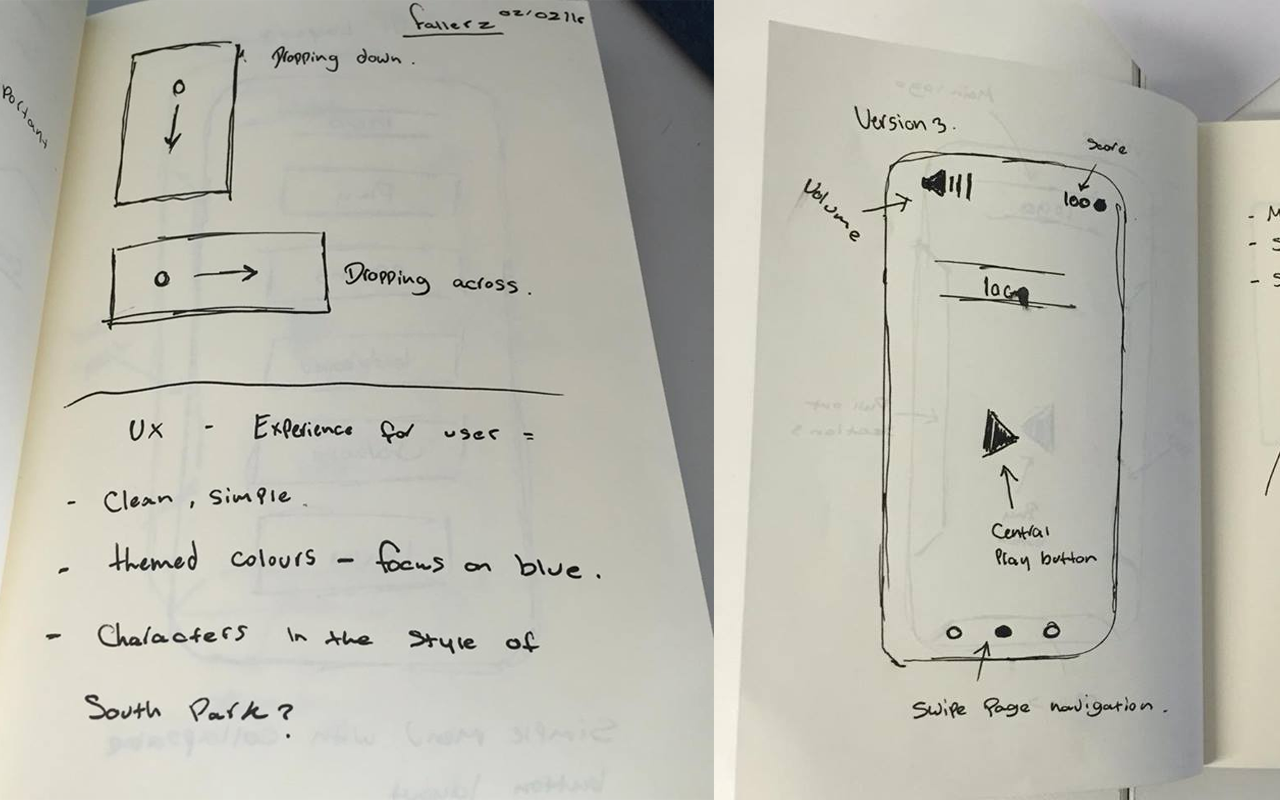 Fallerz 02/02/16
Dropping down.
Dropping across.
UX - Experience for user =
- Clean, simple.
- themed colours - focus on blue.
- Characters in the style of
South Park?
Version 3.
Score
Volume
100
Central
Play button
Swipe Page navigation.
- M
- S
- S